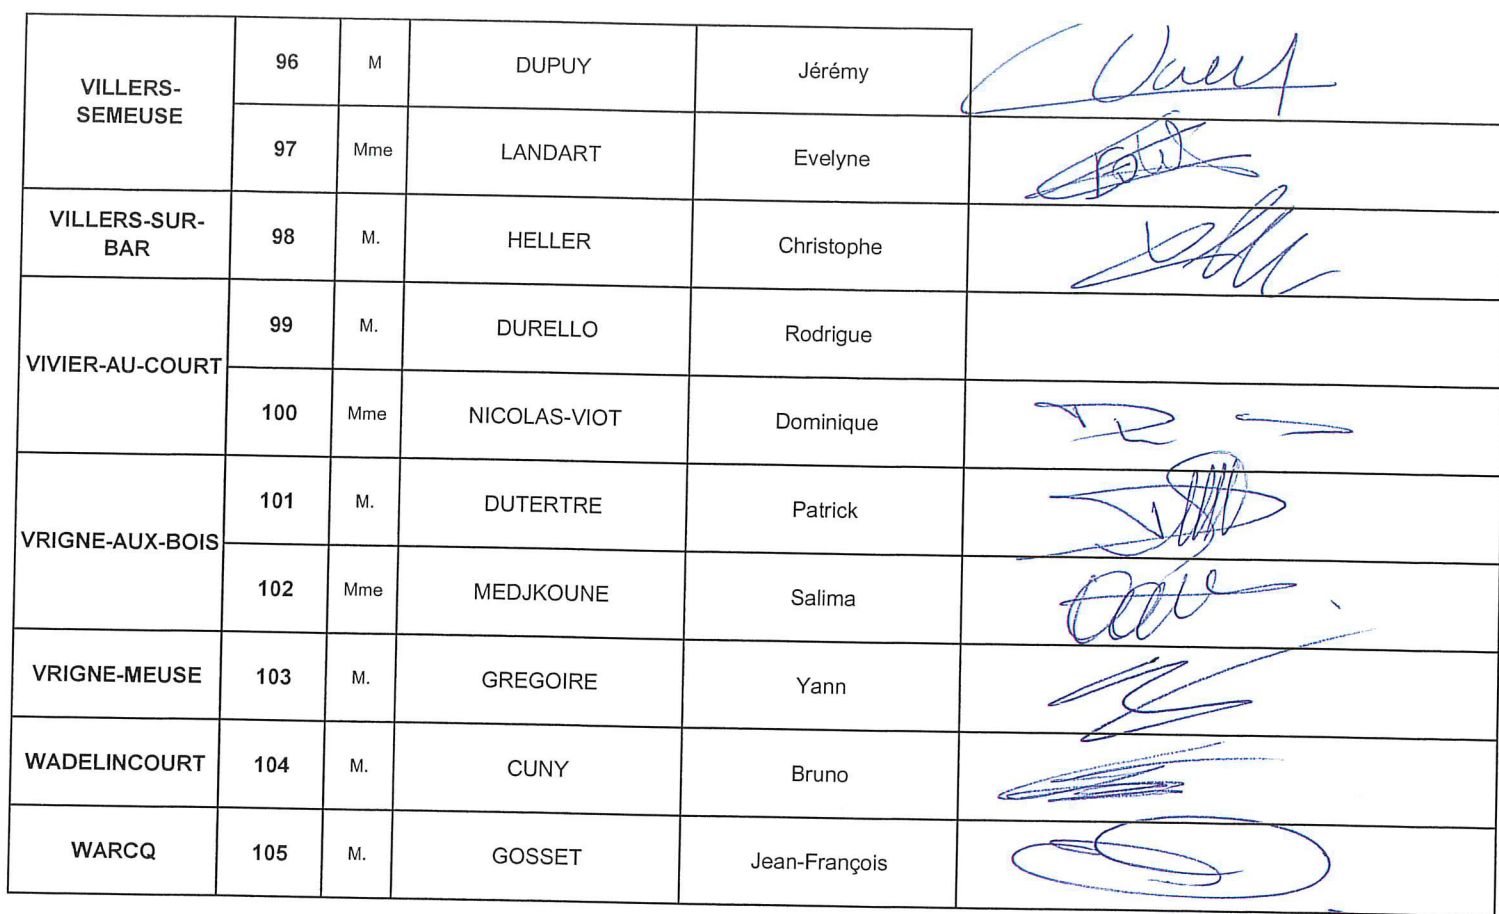 VILLERS-
SEMEUSE
96 M DUPUY Jérémy
97 Mme LANDART Evelyne
VILLERS-SUR-
BAR
98 M. HELLER Christophe
VIVIER-AU-COURT
99 M. DURELLO Rodrigue
100 Mme NICOLAS-VIOT Dominique
VRIGNE-AUX-BOIS
101 M. DUTERTRE Patrick
102 Mme MEDJKOUNE Salima
VRIGNE-MEUSE 103 M. GREGOIRE Yann
WADELINCOURT 104 M. CUNY Bruno
WARCQ 105 M. GOSSET Jean-François